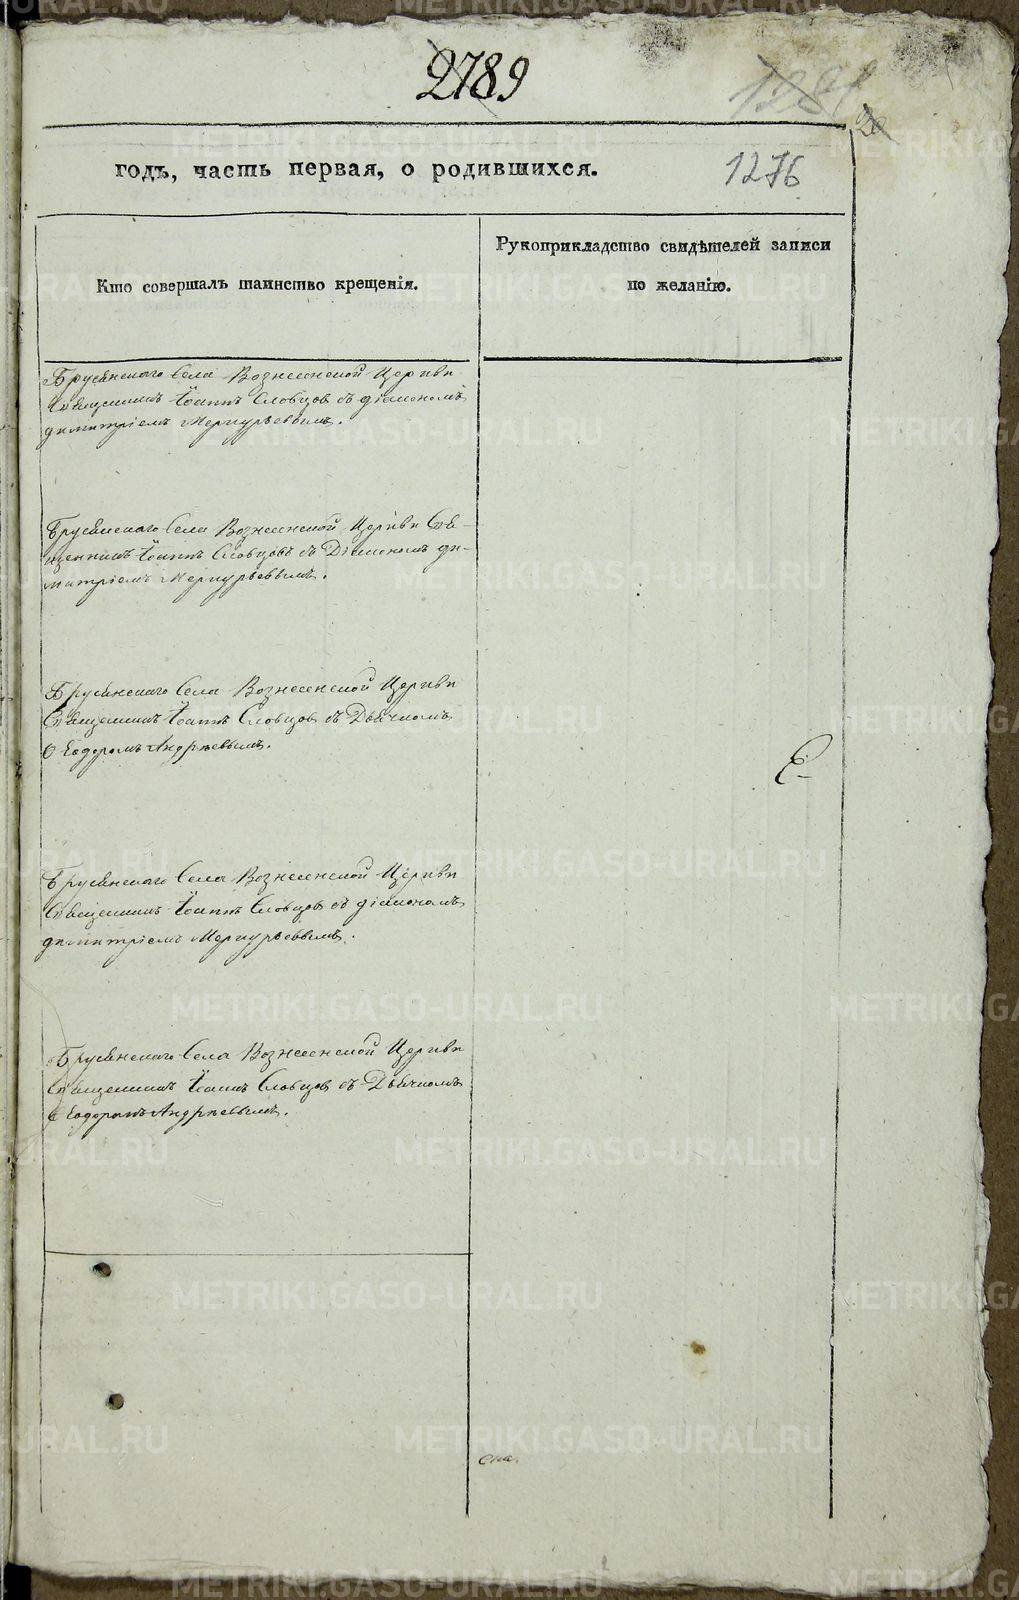 2789
1281
20
годъ, часть первая, о родившихся.
1276
Кто совершалъ таинство крещенія.
Рукоприкладство свидѣтелей записи
по желанію.
Брусянскаго Села Вознесенской Церкви
Священникъ Іоаннъ Словцовъ съ діакономъ
димитріемъ Меркурьевымъ.
Брусянскаго Села Вознесенской Церкви Свя-
щенникъ Іоаннъ Словцовъ съ Діакономъ ди-
митріемъ Меркурьевымъ.
Брусянскаго Села Вознесенской Церкви
Священникъ Іоаннъ Словцовъ съ Дьячкомъ
Ѳеодоромъ Андреевымъ.
Брусянскаго Села Вознесенской Церкви
Священникъ Іоаннъ Словцовъ съ діакономъ
димитріемъ Меркурьевымъ.
Брусянскаго Села Вознесенской Церкви
Священникъ Іоаннъ Словцовъ съ Дьячкомъ
Ѳеодоромъ Андреевымъ.
METRIKI.GASO-URAL.RU